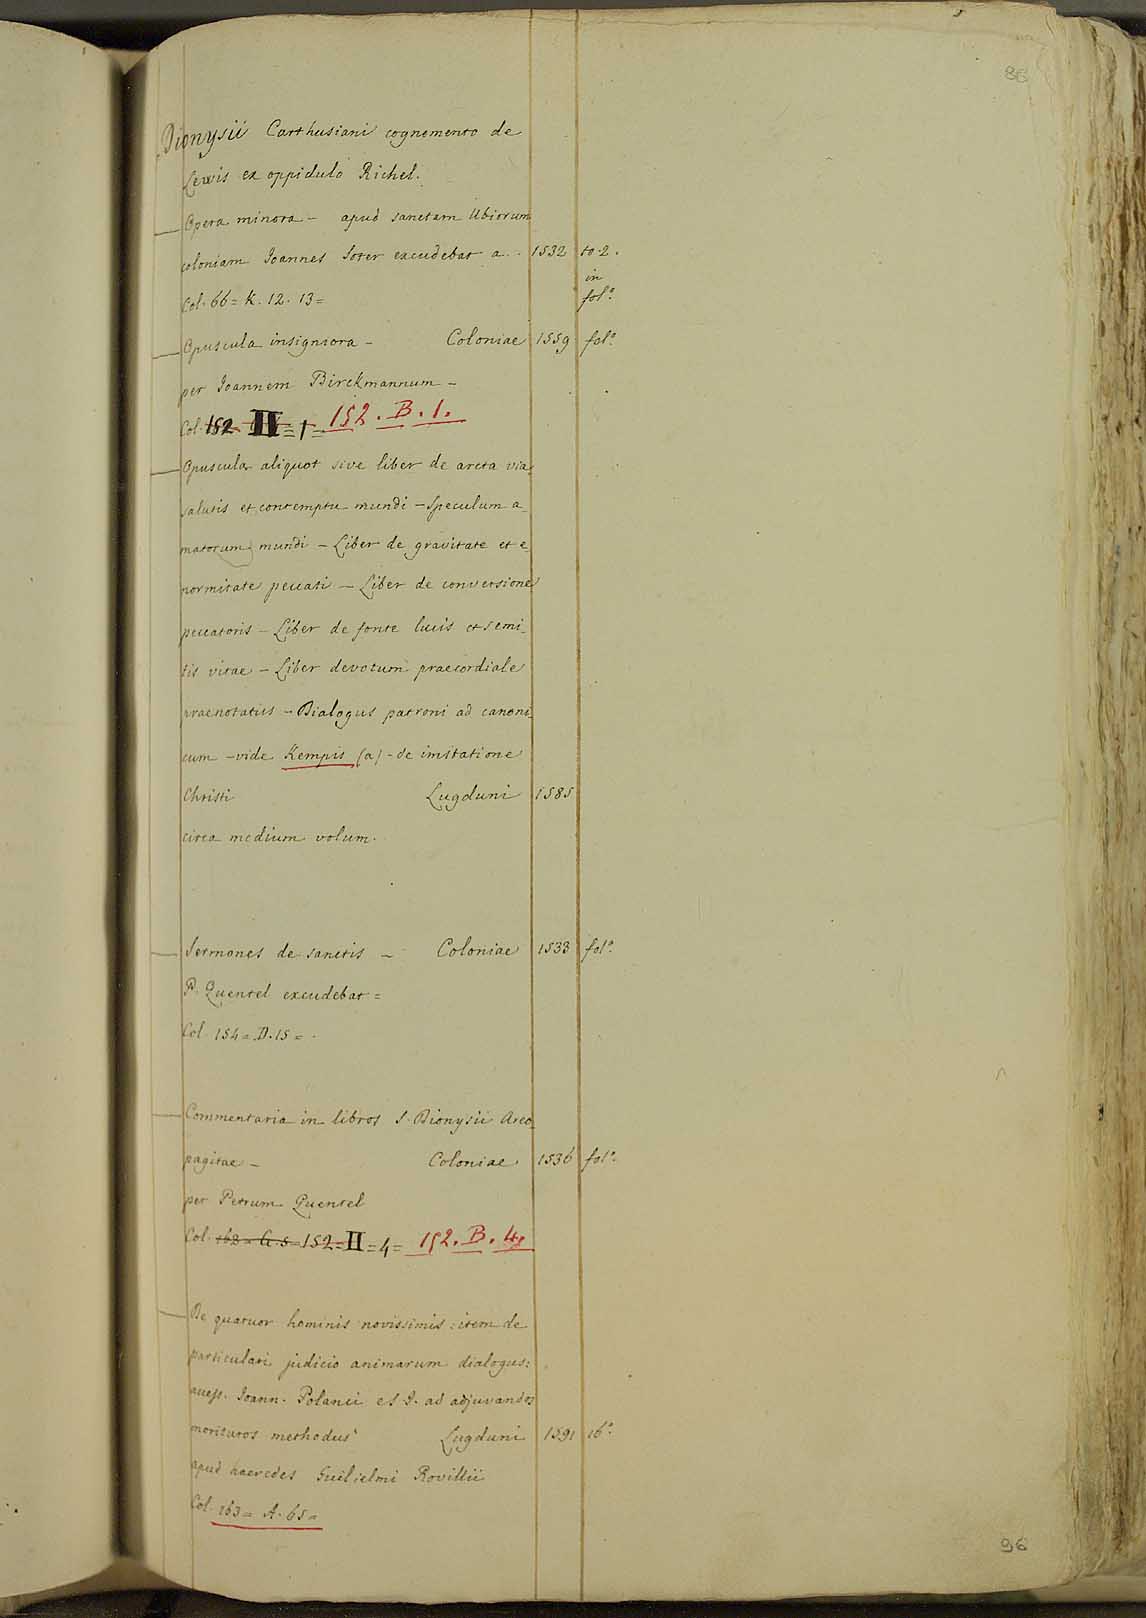 86
Dionysii Carthusiani cognomento de
Lewis ex oppidulo Richel.
Opera minora - apud sanctam Ubiorum
coloniam Joannes Soter excudebat a. 1532 to. 2.
in
Col. 66 = K. 12. 13 = fol.º
Opuscula insigniora - Coloniae 1559 fol.º
per Joannem Birckmannum -
Col. 152 II = 1 = 152. B. 1.
Opuscula aliquot sive liber de arcta via
salutis et contemptu mundi - Speculum a_
matorum mundi - Liber de gravitate et e_
normitate peccati - Liber de conversione
peccatoris - Liber de fonte lucis et semi_
tis vitae - Liber devotum praecordiale
praenotatus - Dialogus patroni ad canoni_
cum - vide Kempis (a) - de imitatione
Christi Lugduni 1585
circa medium volum.
Sermones de sanctis - Coloniae 1533 fol.º
P. Quentel excudebat =
Col. 154 = D. 15 = .
Commentaria in libros S. Dionysii Areo_
pagitae - Coloniae 1536 fol.º
per Petrum Quentel
Col. 168 = G. 5 = 152 = II = 4 = 152. B. 4.
De quatuor hominis novissimis : item de
particulari judicio animarum dialogus :
access. Joann. Polanci e S. J. ad adjuvandos
morituros methodus Lugduni 1591 16.º
apud haeredes Guilielmi Rovillii
Col. 163 = A. 65 =
96